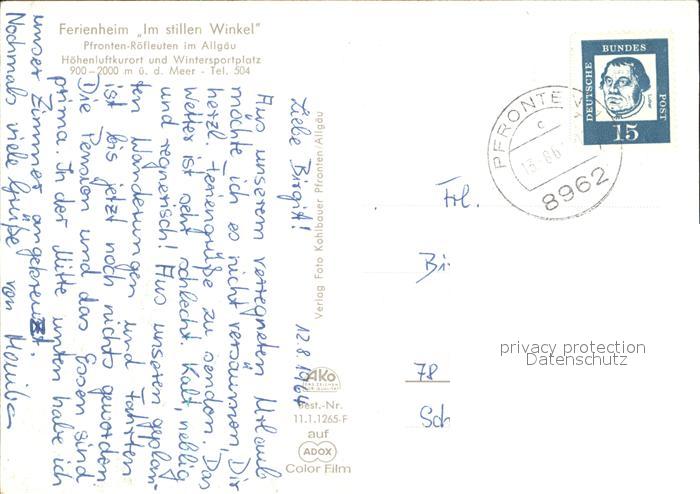 Ferienheim „Im stillen Winkel"
Pfronten-Röfleuten im Allgäu
Höhenluftkurort und Wintersportplatz
900–2000 m ü. d. Meer - Tel. 504
12.8.1964
Liebe Birgit!
Aus unserem verregneten Urlaub
möchte ich es nicht versäumen, Dir
herzl. Feriengrüße zu senden. Das
Wetter ist sehr schlecht. Kalt, neblig
und regnerisch! Aus unseren geplan-
ten Wanderungen und Fahrten
ist bis jetzt noch nichts geworden
Die Pension und das Essen sind
prima. In der Mitte unten habe ich
unser Zimmer angekreuzt.
Nochmals viele Grüße von
Verlag Foto Kohlbauer Pfronten/Allgäu
AKo
Best.-Nr.
11.1.1265-F
auf
ADOX
Color Film
DEUTSCHE
BUNDES
POST
Luther
15
PFRONTEN
c
13.8.6
8962
Frl.
Bi
78
Sch
privacy protection
Datenschutz